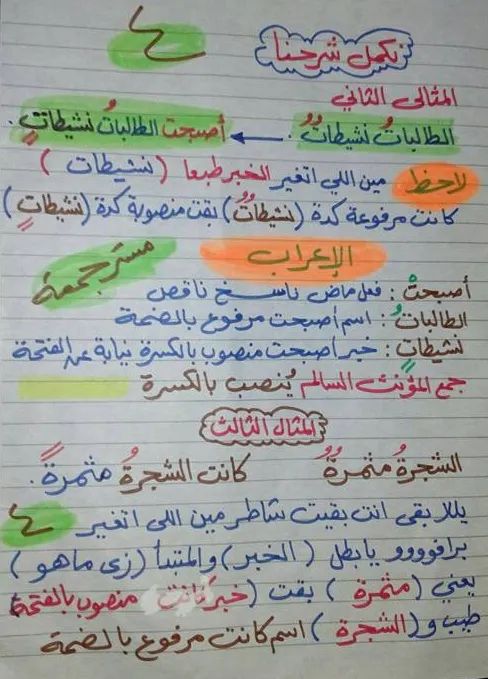 نكمل شرحنا
٤
المثالى الثاني
الطالباتُ نشيطاتٌ . ← أصبحت الطالباتُ نشيطاتٍ .
لاحظ مين اللي اتغير الخبر طبعا ( نشيطات )
كانت مرفوعة كدة (نشيطاتٌ) بقت منصوبة كدة (نشيطاتٍ)
الإعراب
مستر جمعة
أصبحتْ : فعل ماض ناسخ ناقص
الطالباتُ : اسم أصبحت مرفوع بالضمة
نشيطاتٍ : خبر أصبحت منصوب بالكسرة نيابة عن الفتحة
جمع المؤنث السالم يُنصب بالكسرة
المثال الثالث
الشجرةُ مثمرةٌ كانت الشجرةُ مثمرةً .
يللا بقى انت بقيت شاطر مين اللى اتغير ٤
برافوووو يا بطل ( الخبر ) والمبتدأ ( زى ماهو )
يعني ( مثمرة ) بقت ( خبر كانت منصوب بالفتحة )
طيب و( الشجرة ) اسم كانت مرفوع بالضمة